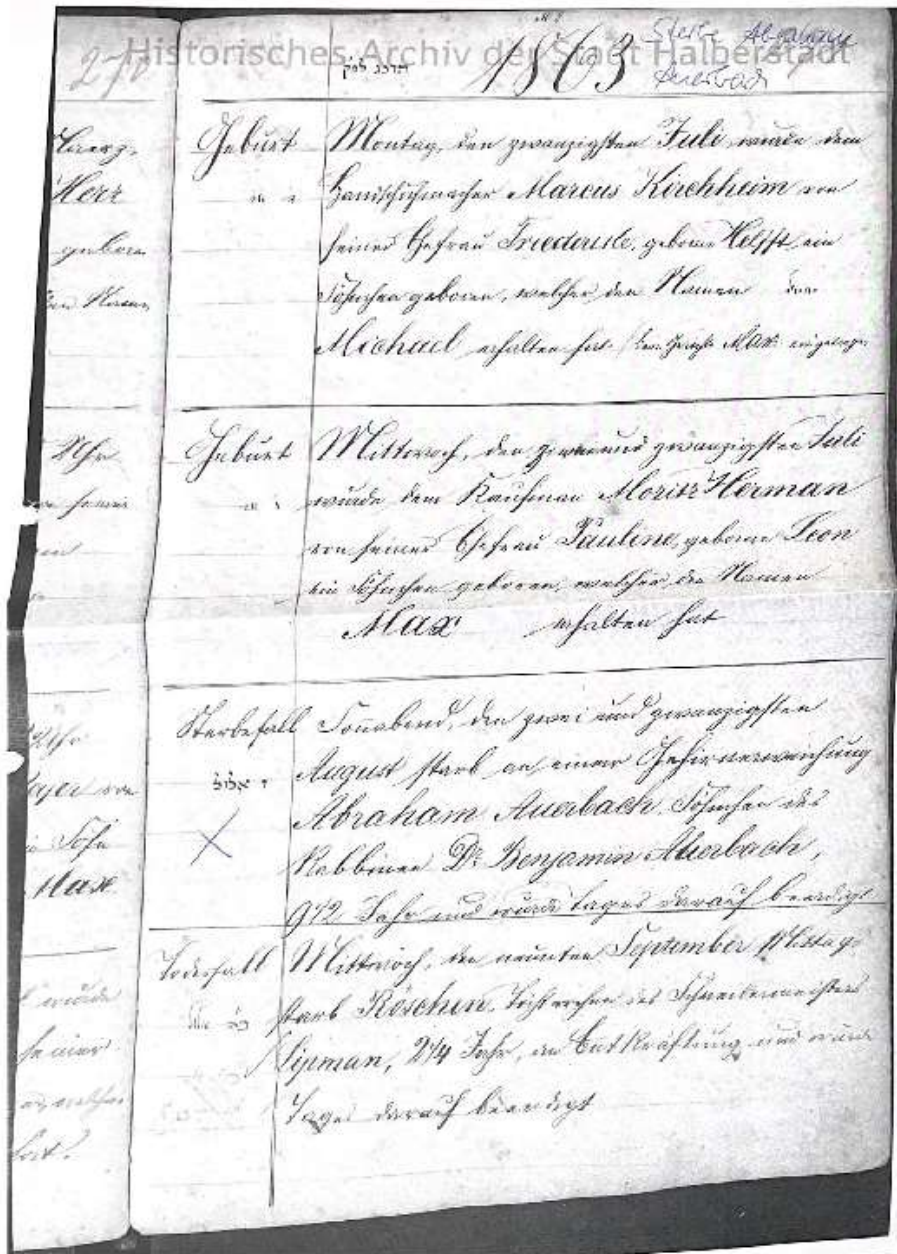 Historisches Archiv der Stadt Halberstadt
270
1863
Sterbe Abraham
Auerbach
Herz
geboren
den Namen
Uhr
Sohn
Max
wurde
seiner
Geburt
Montag, den zwanzigsten Juli wurde dem
Handschuhmacher Marcus Kirchheim von
seiner Ehefrau Friederike, geborne Helfft, ein
Söhnchen geboren, welcher den Namen
Michael erhalten hat. Max eingetragen
Geburt
Mittwoch, den zweiund zwanzigsten Juli
wurde dem Kaufman Moritz Herman
von seiner Ehefrau Pauline, geborne Leon
ein Söhnchen geboren, welcher den Namen
Max erhalten hat
Sterbefall
Sonnabend, den zwei und zwanzigsten
ז אלול
August starb an einer Gehirnerweichung
Abraham Auerbach, Söhnchen des
Rabbiner Dr Benjamin Auerbach,
9 1/2 Jahr und wurde tages darauf beerdigt
Todesfall
Mittwoch, den neunten September Mittags
starb Röschen, Töchterchen des Schneidermeisters
Lipman, 2 1/4 Jahr, an Entkräftung und wurde
Tages darauf beerdigt